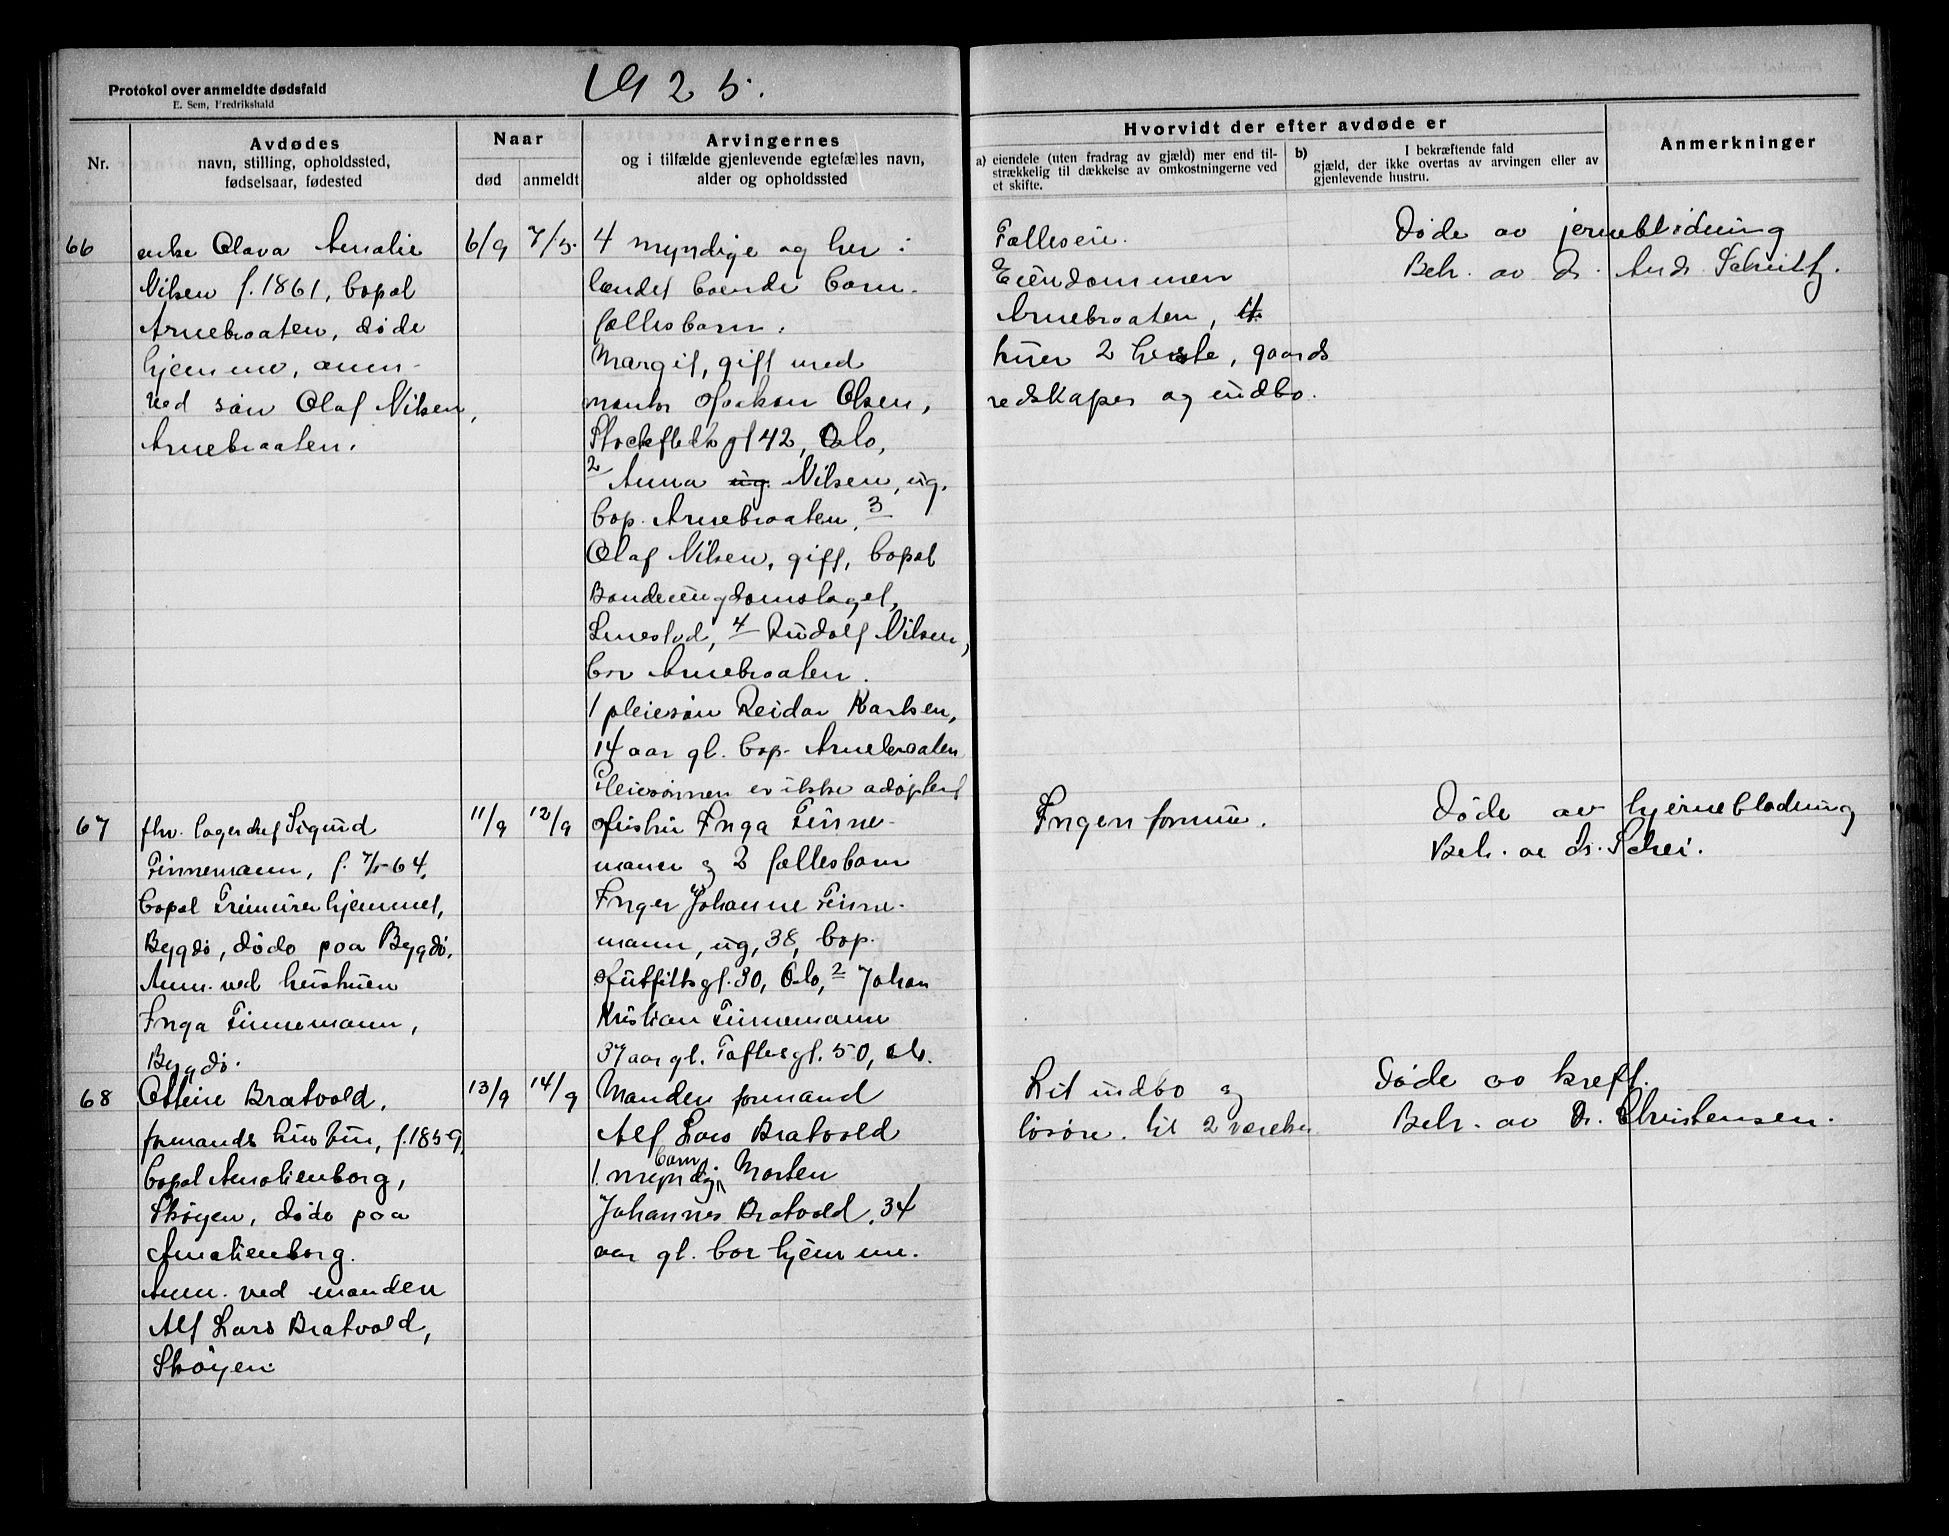 Protokol over anmeldte dødsfald
E. Sem, Fredrikshald
1925.
Nr.
Avdødes
navn, stilling, opholdssted,
fødselsaar, fødested
Naar
død
anmeldt
Arvingernes
og i tilfælde gjenlevende egtefælles navn,
alder og opholdssted
Hvorvidt der efter avdøde er
a) eiendele (uten fradrag av gjæld) mer end til-
strækkelig til dækkelse av omkostningerne ved
et skifte.
b) I bekræftende fald
gjæld, der ikke overtas av arvingen eller av
gjenlevende hustru.
Anmerkninger
66
enke Olava Amalie
Nilsen f. 1861, bopæl
Arnebraaten, døde
hjemme, anm.
ved søn Olaf Nilsen,
Arnebraaten.
6/9
7/5.
4 myndige og her i
landet boende barn.
fællesbarn:
Margit, gift med
Olsen,
Stockfleths gt 42, Oslo,
2 Anna ug. Nilsen, ug.
bop. Arnebraaten, 3
Olaf Nilsen, gift, bopæl
Bondeungdomslaget,
4 Rudolf Nilsen,
bor Arnebraaten.
1 pleiesøn Reidar Karlsen,
14 aar gl. bop. Arnebraaten
Pleiesønnen er ikke adoptert
Fælleseie.
Eiendommen
Arnebraaten,
2 heste, gaards
redskaper og indbo.
Døde av jerneblødning
Beh. av dr. Andr.
67
fhv. lagerchef Sigurd
Finnemann, f. 7/5-64,
bopæl Frimurerhjemmet,
Bygdø, døde paa Bygdø.
Anm. ved hustruen
Inga Finnemann,
Bygdø.
11/9
12/9
Hustru Inga Finne-
mann og 2 fællesbarn
Inger Johanne Finne-
mann, ug, 38, bop.
Huitfeldtsgt. 30, Oslo, 2 Johan
Kristian Finnemann
37 aar gl. Toftesgt. 50, Oslo.
Ingen formue.
Døde av hjerneblødning
Beh. av dr. Schei.
68
Ottine Bratvold,
formands hustru, f. 1859,
bopæl Amalienborg,
Skøyen, døde paa
Amalienborg.
Anm. ved manden
Alf Lars Bratvold,
Skøyen.
13/9
14/9
Manden formand
Alf Lars Bratvold
1. myndig barn, Morten
Johannes Bratvold, 34
aar gl. bor hjemme.
Lit indbo og
løsøre. til 2 værelser
Døde av kreft.
Beh. av Dr. Christensen.